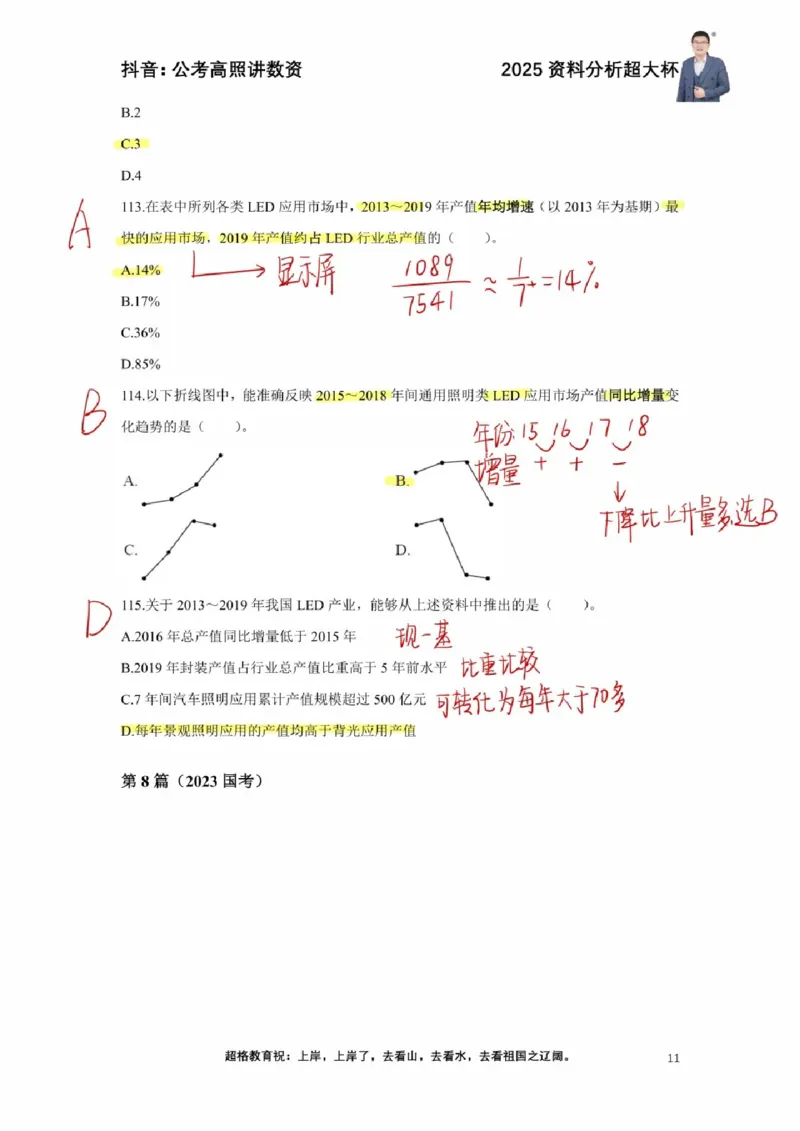 抖音：公考高照讲数资
2025 资料分析超大杯
B.2
C.3
D.4
A
113.在表中所列各类 LED 应用市场中，2013～2019 年产值年均增速（以 2013 年为基期）最
快的应用市场，2019 年产值约占 LED 行业总产值的（ ）。
A.14%
显示屏
1089/7541 ≈ 1/7+ = 14%
B.17%
C.36%
D.85%
B
114.以下折线图中，能准确反映 2015～2018 年间通用照明类 LED 应用市场产值同比增量变
化趋势的是（ ）。
年份 15 16 17 18
增量 + + −
下降比上升量多,选B
A.
B.
C.
D.
D
115.关于 2013～2019 年我国 LED 产业，能够从上述资料中推出的是（ ）。
A.2016 年总产值同比增量低于 2015 年
现一基
B.2019 年封装产值占行业总产值比重高于 5 年前水平
比重比较
C.7 年间汽车照明应用累计产值规模超过 500 亿元
可转化为每年大于70多
D.每年景观照明应用的产值均高于背光应用产值
第 8 篇（2023 国考）
超格教育祝：上岸，上岸了，去看山，去看水，去看祖国之辽阔。
11